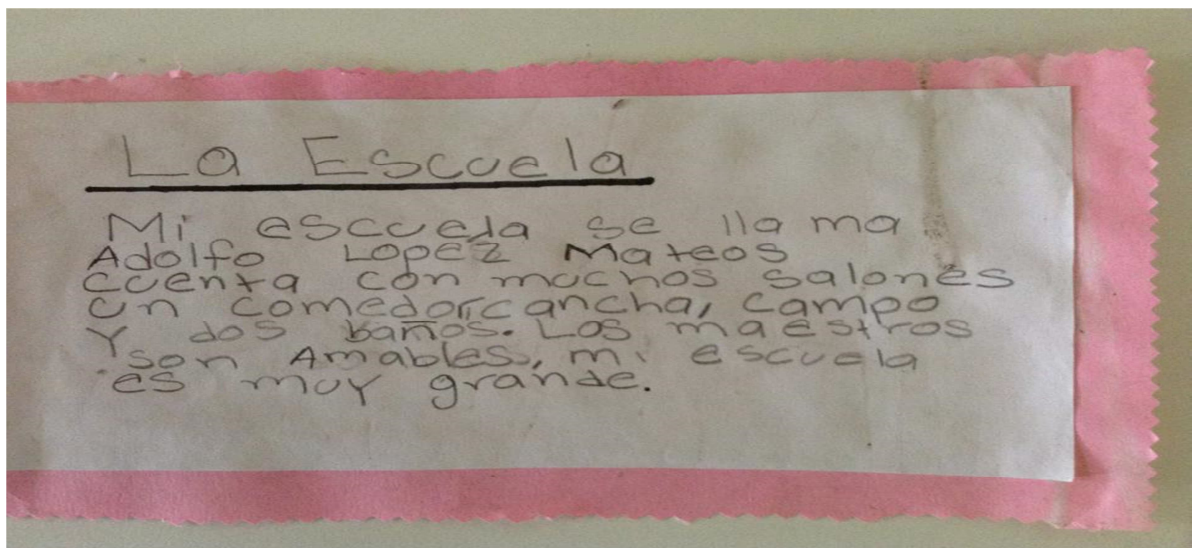 La Escuela
Mi escuela se lla ma
Adolfo Lopez Mateos
cuenta con muchos salones
un comedor, cancha, campo
Y dos baños. Los maestros
son Amables, mi escuela
es muy grande.